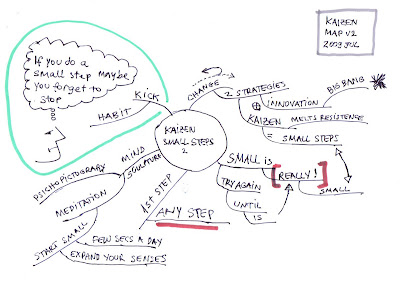 KAIZEN
MAP V2
2009 JUL
If you do a
small step maybe
you forget to
stop
KICK
HABIT
KAIZEN
SMALL STEPS
2
CHANGE
2 STRATEGIES
INNOVATION
BIG BANG
KAIZEN MELTS RESISTENCE
= SMALL STEPS
SMALL is
[REALLY!]
SMALL
TRY AGAIN
UNTIL
IS
1ST STEP
ANY STEP
MIND
SCULPTURE
PSYCHOPICTOGRAPHY
MEDITATION
START SMALL
FEW SECS A DAY
EXPAND YOUR SENSES